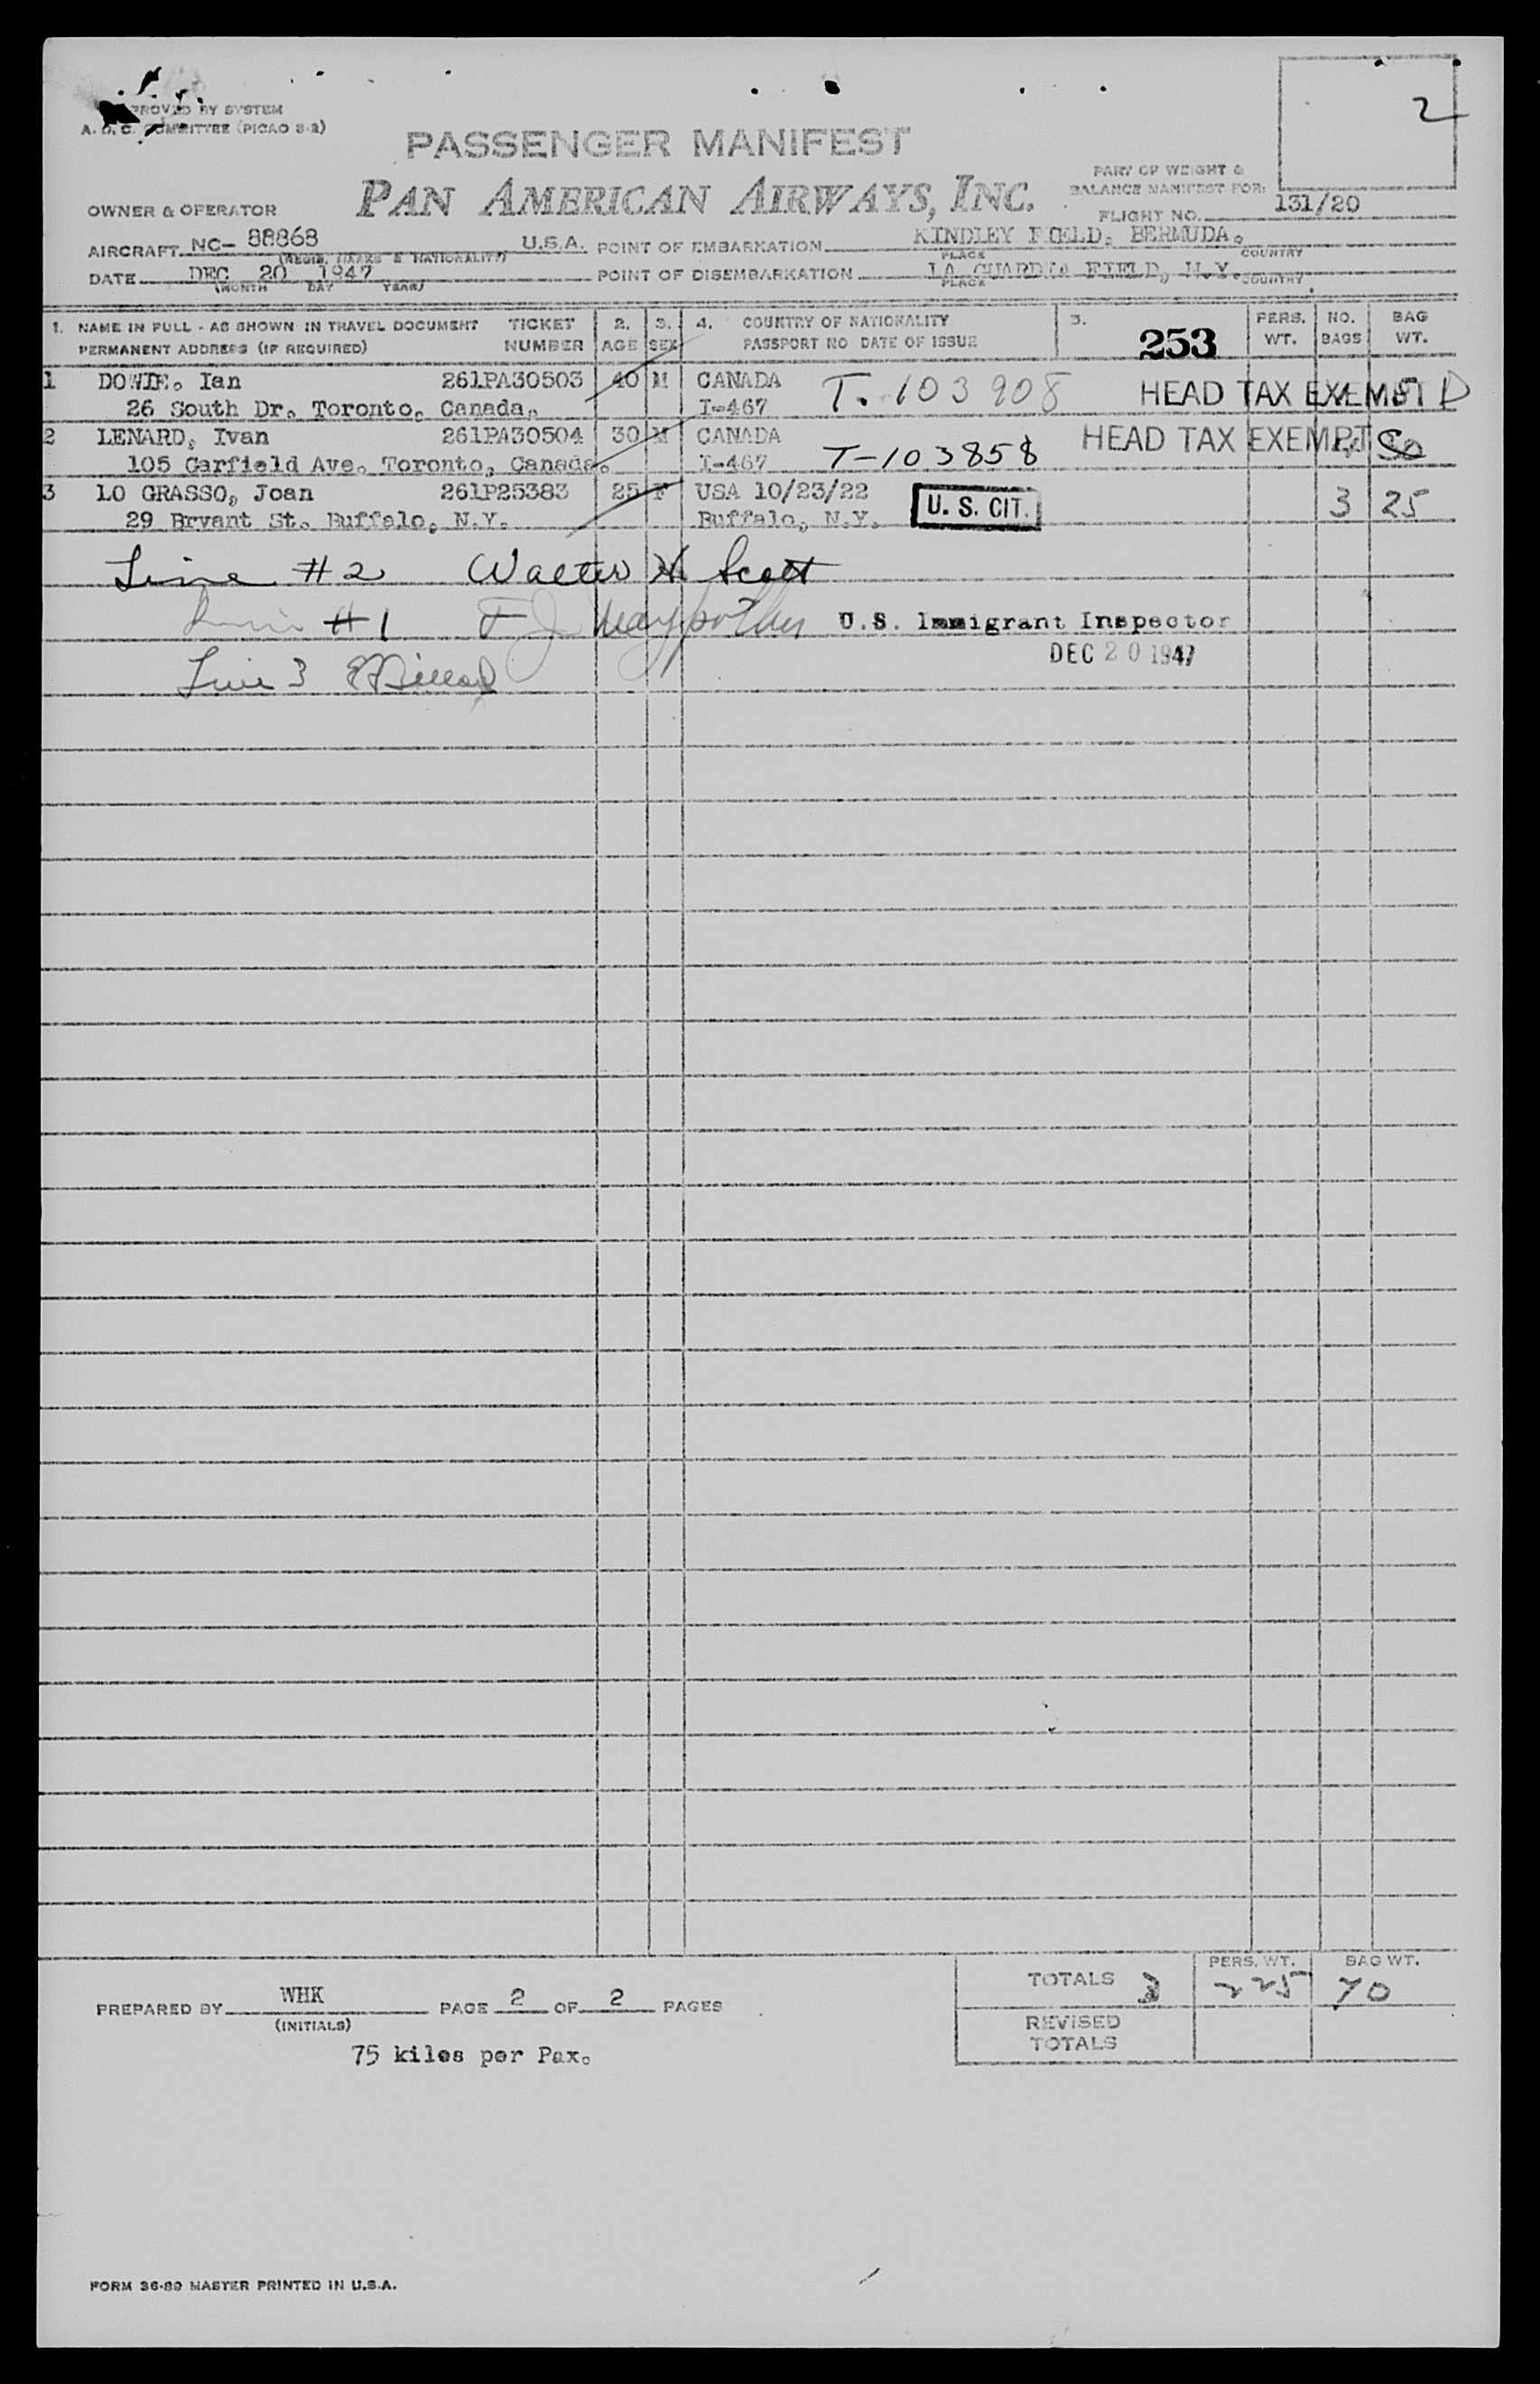 2
PROVED BY SYSTEM
A. O. C. COMMITTEE (PICAO 8-2)
PASSENGER MANIFEST
PAN AMERICAN AIRWAYS, INC.
PART OF WEIGHT &
BALANCE MANIFEST FOR:
OWNER & OPERATOR
FLIGHT NO. 131/20
AIRCRAFT NC- 88868 U.S.A. POINT OF EMBARKATION KINDLEY FIELD, BERMUDA.
(REGIS. MARKS & NATIONALITY) PLACE COUNTRY
DATE DEC 20 1947 POINT OF DISEMBARKATION LA GUARDIA FIELD, N.Y.
(MONTH DAY YEAR) PLACE COUNTRY
1. NAME IN FULL - AS SHOWN IN TRAVEL DOCUMENT TICKET 2. 3. 4. COUNTRY OF NATIONALITY 5. PERS. NO. BAG
PERMANENT ADDRESS (IF REQUIRED) NUMBER AGE SEX PASSPORT NO DATE OF ISSUE 253 WT. BAGS WT.
1 DOWIE, Ian 261PA30503 40 M CANADA T-103908 HEAD TAX EXEMPT
26 South Dr. Toronto, Canada. I-467
2 LENARD, Ivan 261PA30504 30 M CANADA HEAD TAX EXEMPT
105 Garfield Ave. Toronto, Canada. I-467 T-103858
3 LO GRASSO, Joan 261P25383 25 F USA 10/23/22 U. S. CIT. 3 25
29 Bryant St. Buffalo, N.Y. Buffalo, N.Y.
Line #2 Walter H. Scott
Line #1 F J U.S. Immigrant Inspector
DEC 20 1947
Line 3
TOTALS 3 PERS. WT. 225 BAG WT. 70
PREPARED BY WHK PAGE 2 OF 2 PAGES
(INITIALS)
REVISED
TOTALS
75 kilos per Pax.
FORM 36-89 MASTER PRINTED IN U.S.A.